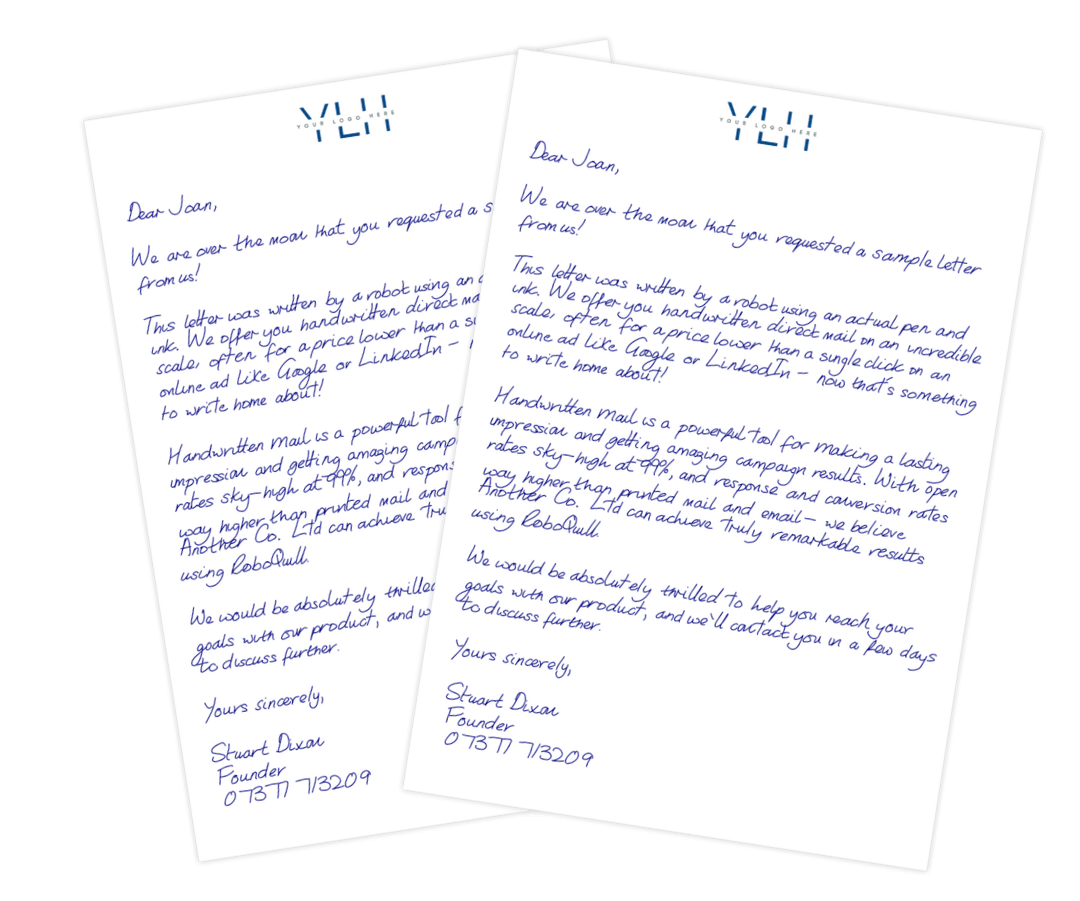 YLH
YOUR LOGO HERE
Dear Joan,
We are over the moon that you requested a s
from us!
This letter was written by a robot using an
ink. We offer you handwritten direct ma
scale, often for a price lower than a si
online ad like Google or LinkedIn –
to write home about!
Handwritten mail is a powerful tool f
impression and getting amazing camp
rates sky-high at 99%, and respon
way higher than printed mail and
Another Co. Ltd can achieve tru
using RoboQuill.
We would be absolutely thrilled
goals with our product, and w
to discuss further.
Yours sincerely,
Stuart Dixon
Founder
07377 713209
YLH
YOUR LOGO HERE
Dear Joan,
We are over the moon that you requested a sample letter
from us!
This letter was written by a robot using an actual pen and
ink. We offer you handwritten direct mail on an incredible
scale, often for a price lower than a single click on an
online ad like Google or LinkedIn – now that's something
to write home about!
Handwritten mail is a powerful tool for making a lasting
impression and getting amazing campaign results. With open
rates sky-high at 99%, and response and conversion rates
way higher than printed mail and email – we believe
Another Co. Ltd can achieve truly remarkable results
using RoboQuill.
We would be absolutely thrilled to help you reach your
goals with our product, and we'll contact you in a few days
to discuss further.
Yours sincerely,
Stuart Dixon
Founder
07377 713209